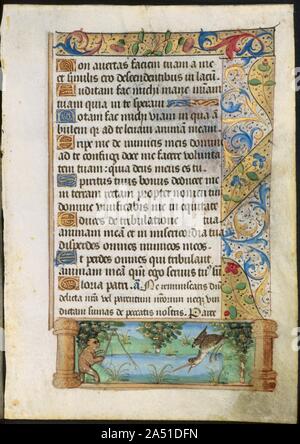 Non avertas faciem tuam a me
et similis ero descendentibus in lacu.
Auditam fac michi mane miam
tuam quia in te speravi
Notam fac michi viam in qua a
bulem qr ad te levavi animā meam
Eripe me de inimicis meis domine
ad te confugi doce me facere volunta
tem tuam: quia deus meus es tu.
Spiritus tuus bonus deducet me
in terram rectam propter nomen tuū
domine vivificabis me in equitate
Educes de tribulatione tua
animam meā et in misericordia tua
disperdes omnes inimicos meos.
Et perdes omnes qui tribulant
animam meā qm ego servus tu sū
Gloria patri. añ. Ne reminiscaris dn̄e
delicta nr̄a vel parentum nostrorum neqz vin
dictam sumas de peccatis nostris. Pate
alamy
Image ID: 2A51DFN
www.alamy.com